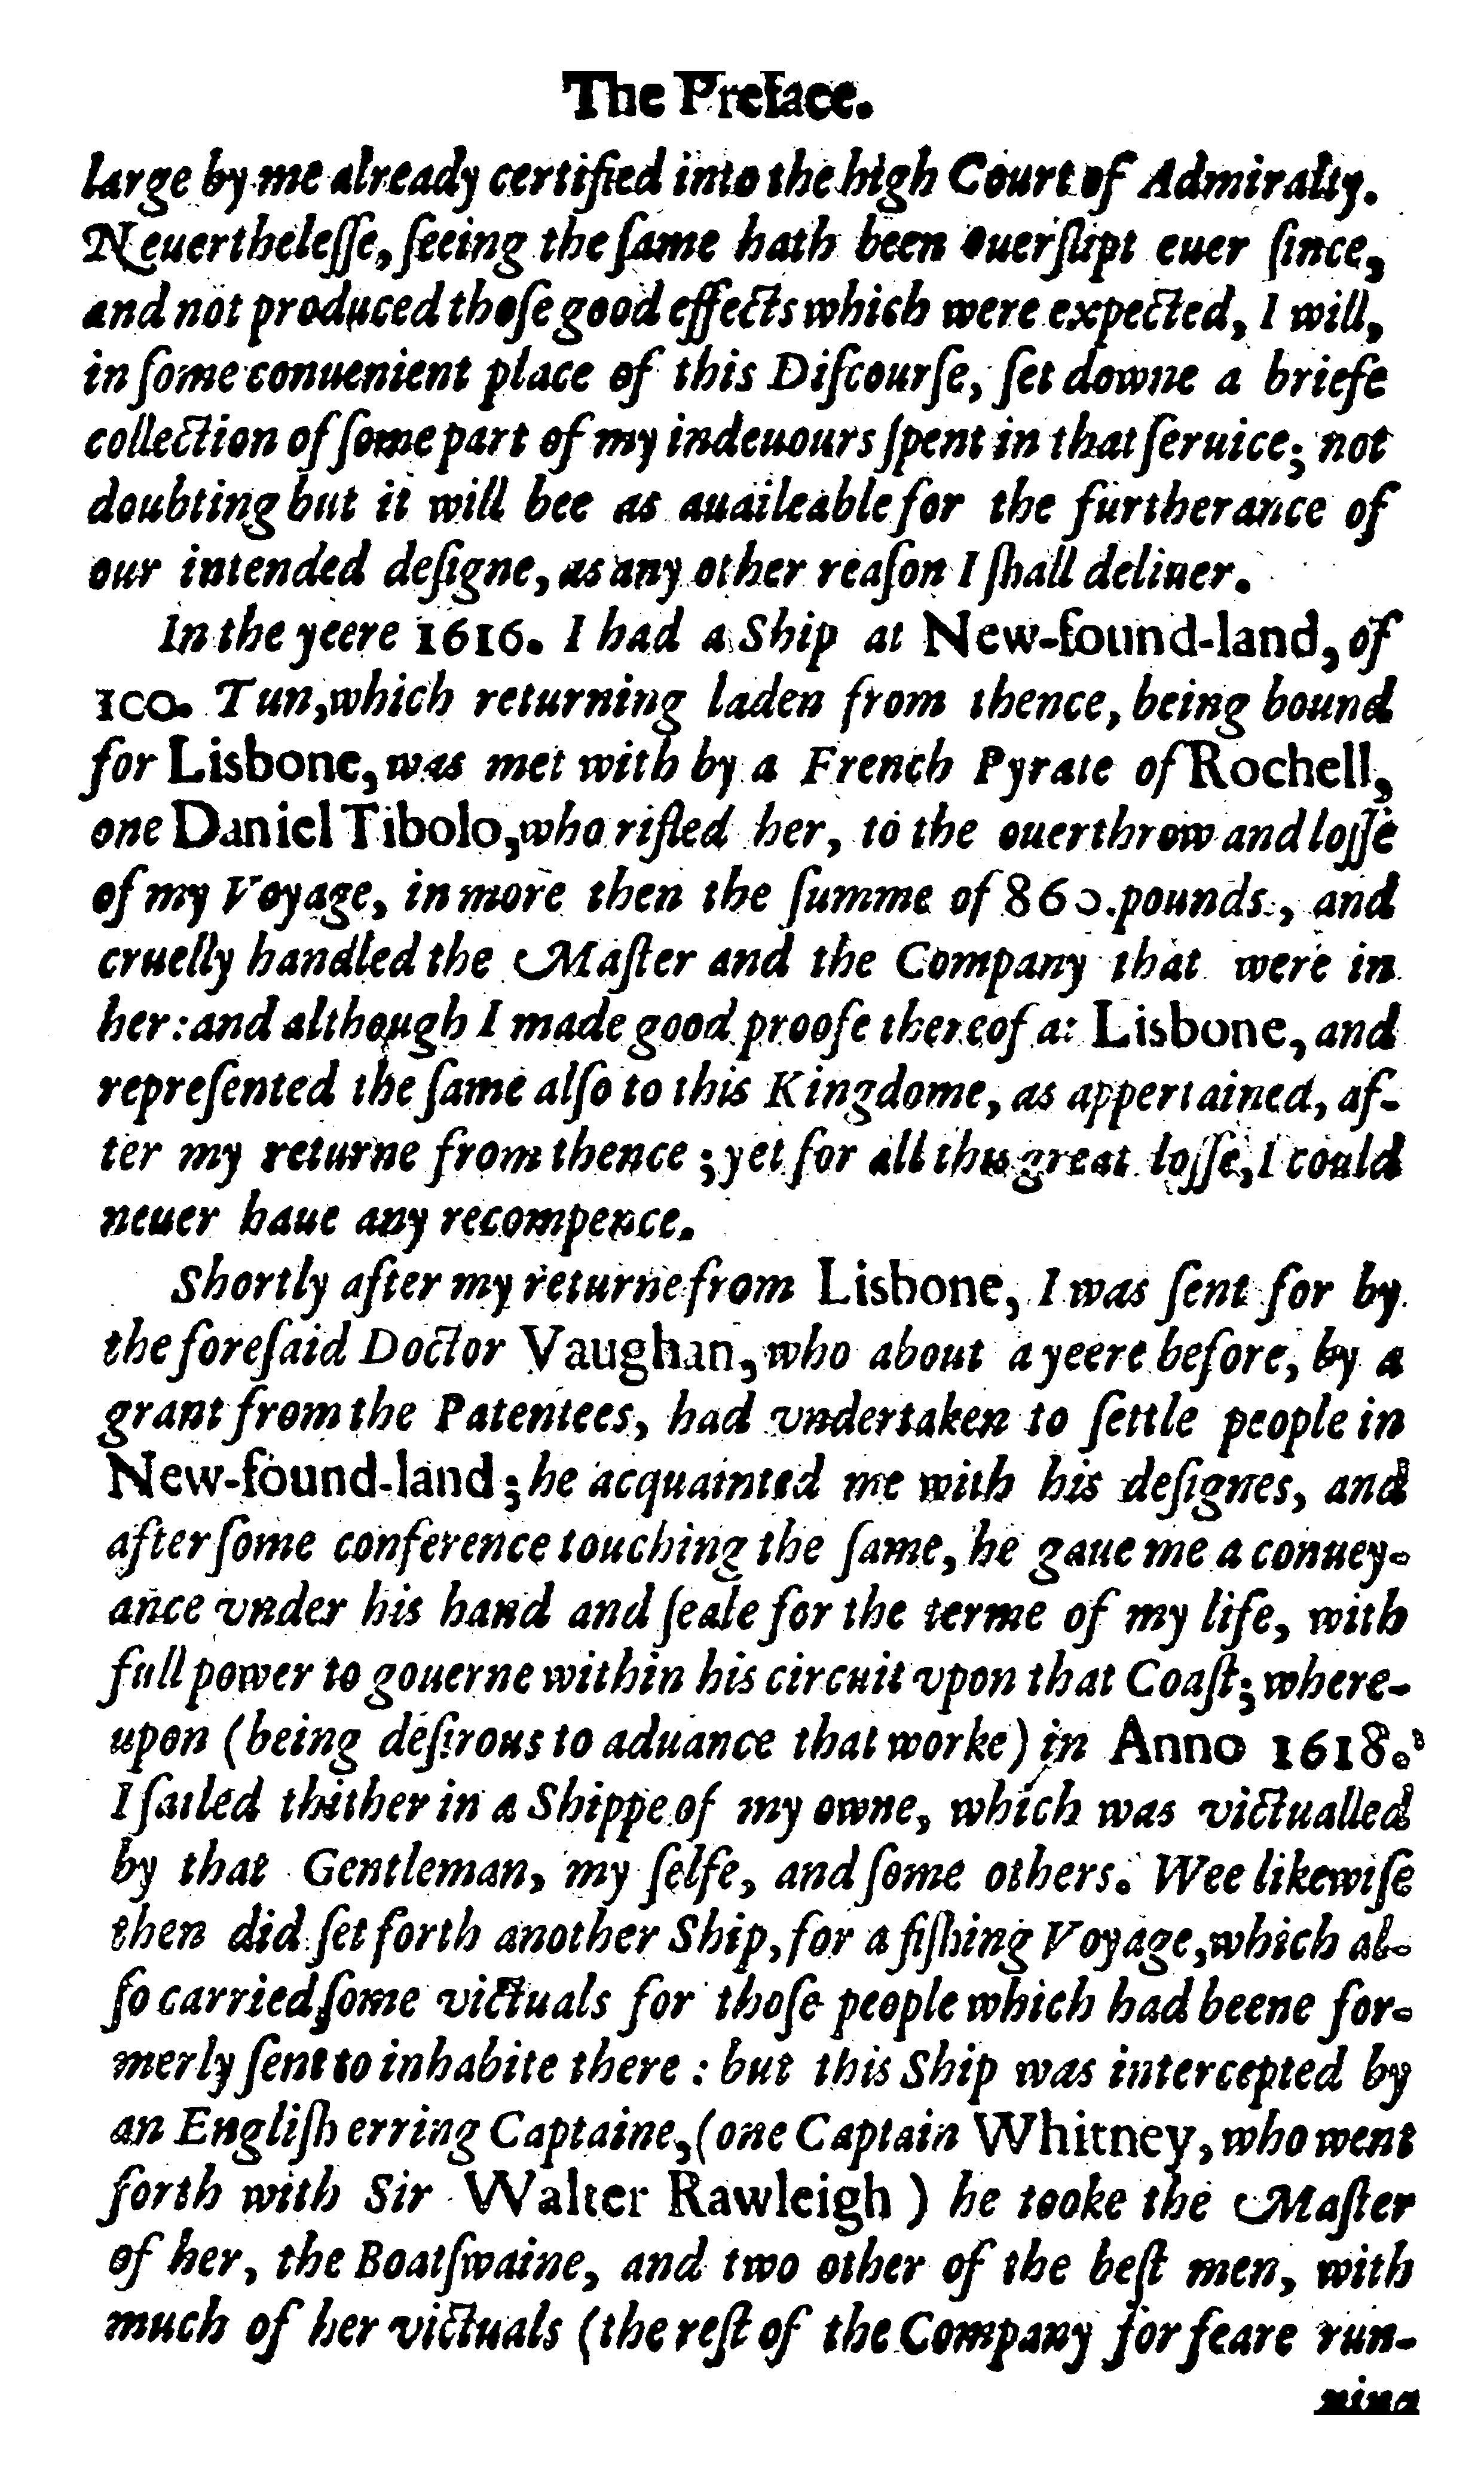 The Preface.
large by me already certified into the high Court of Admiralty.
Neuertheleſſe, ſeeing the ſame hath been ouerſlipt euer ſince,
and not produced thoſe good effects which were expected, I will,
in ſome conuenient place of this Diſcourſe, ſet downe a briefe
collection of ſome part of my indeuours ſpent in that ſeruice; not
doubting but it will bee as auaileable for the furtherance of
our intended deſigne, as any other reaſon I ſhall deliuer.
In the yeere 1616. I had a Ship at New-found-land, of
100. Tun, which returning laden from thence, being bound
for Lisbone, was met with by a French Pyrate of Rochell,
one Daniel Tibolo, who rifled her, to the ouerthrow and loſſe
of my Voyage, in more then the ſumme of 860. pounds, and
cruelly handled the Maſter and the Company that were in
her: and although I made good proofe thereof at Lisbone, and
repreſented the ſame alſo to this Kingdome, as appertained, af-
ter my returne from thence; yet for all this great loſſe, I could
neuer haue any recompence.
Shortly after my returne from Lisbone, I was ſent for by
the foreſaid Doctor Vaughan, who about a yeere before, by a
grant from the Patentees, had vndertaken to ſettle people in
New-found-land; he acquainted me with his deſignes, and
after ſome conference touching the ſame, he gaue me a conuey-
ance vnder his hand and ſeale for the terme of my life, with
full power to gouerne within his circuit vpon that Coaſt; where-
upon (being deſirous to aduance that worke) in Anno 1618.
I ſailed thither in a Shippe of my owne, which was victualled
by that Gentleman, my ſelfe, and ſome others. Wee likewiſe
then did ſet forth another Ship, for a fiſhing Voyage, which al-
ſo carried ſome victuals for thoſe people which had beene for-
merly ſent to inhabite there: but this Ship was intercepted by
an Engliſh erring Captaine, (one Captain Whitney, who went
forth with Sir Walter Rawleigh) he tooke the Maſter
of her, the Boatſwaine, and two other of the beſt men, with
much of her victuals (the reſt of the Company for feare run-
ning